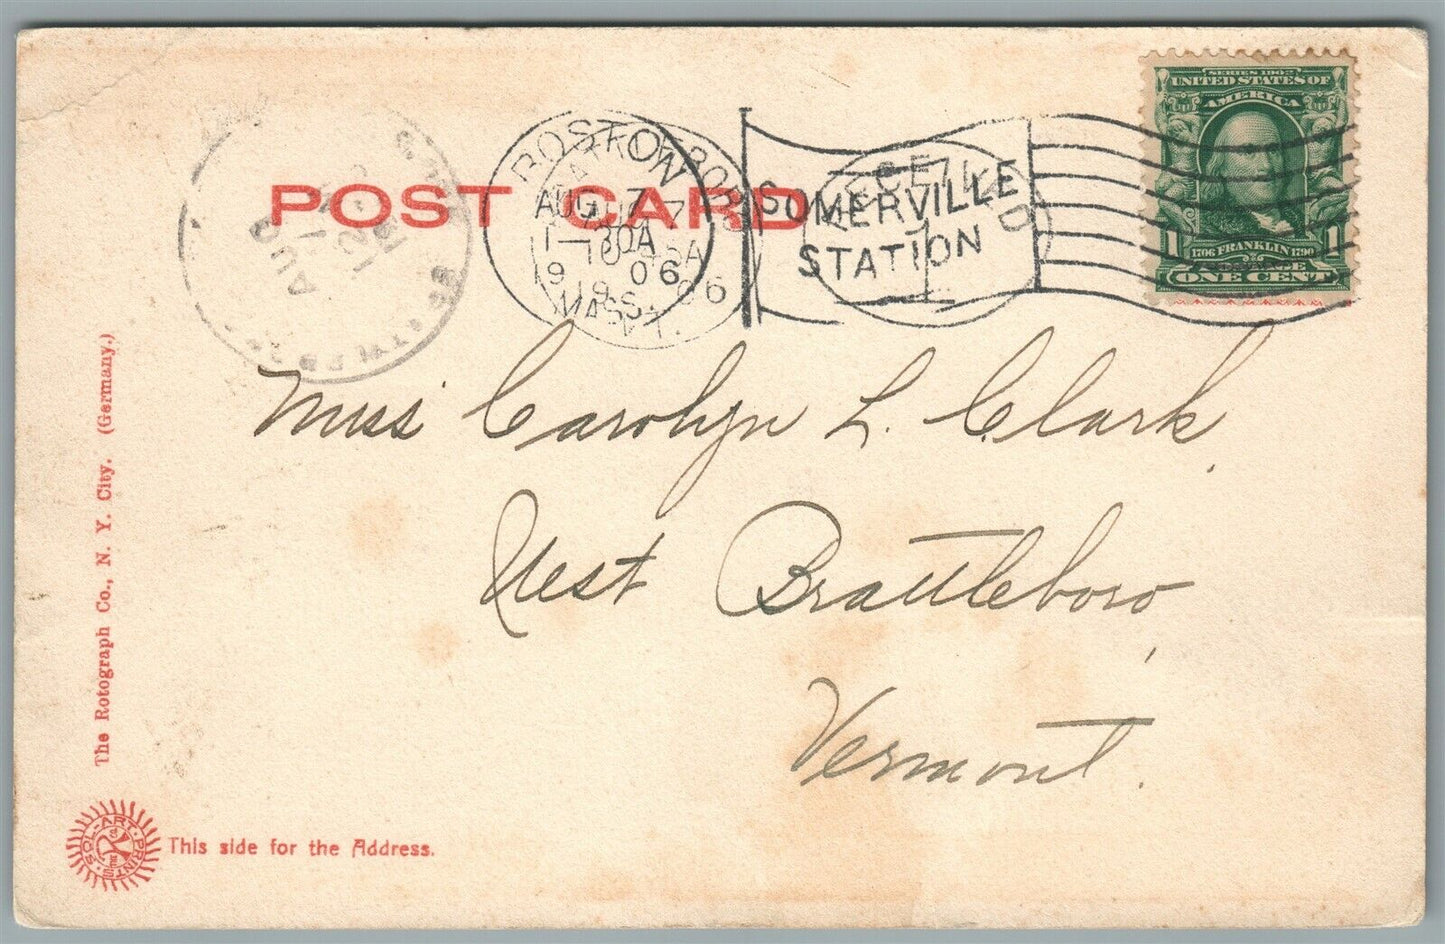 POST CARD
BOSTON
AUG 17
1-30A
1906
MASS.
SOMERVILLE
STATION
RECEIVED
1
AUG
17
SERIES 1902
UNITED STATES OF
AMERICA
1706 FRANKLIN 1790
1 1
ONE CENT
Miss Carolyn L. Clark,
West Brattleboro,
Vermont.
The Rotograph Co., N. Y. City. (Germany.)
SOL-ART-PRINTS
This side for the Address.